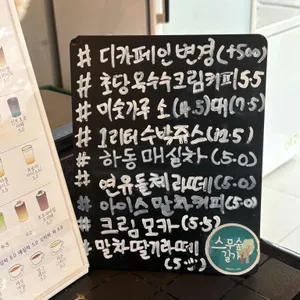 # 디카페인 변경 (+500)
# 초당옥수수크림커피 5.5
# 미숫가루 소(4.5) 대(7.5)
# 1리터 수박쥬스 (12.5)
# 하동 매실차 (5.0)
# 연유돌체라떼 (5.0)
# 아이스 말차커피 (5.0)
# 크림모카 (5.5)
# 말차딸기라떼
(5.5)
스무숲
길가